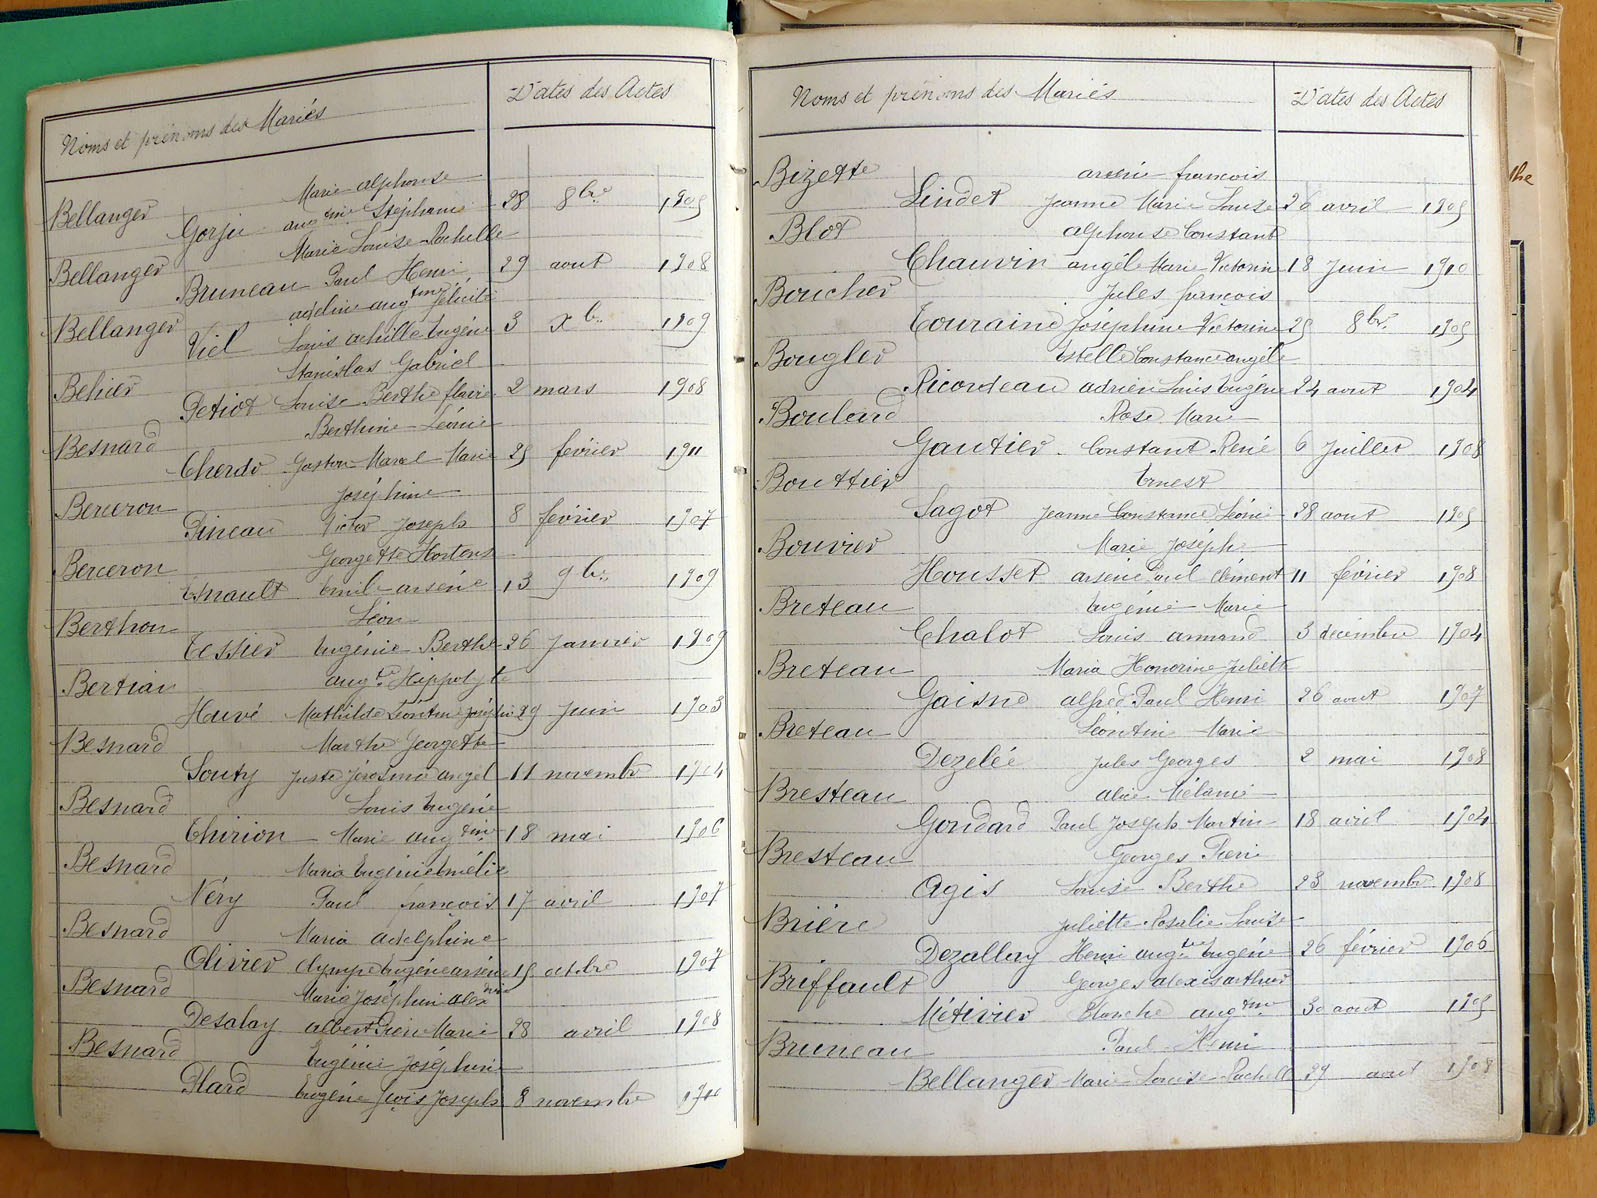 Noms et prénoms des Mariés Dates des Actes
Bellanger Marie alphonse
Gorju augtine Stéphanie 28 8bre 1905
Bellanger Marie Louise Rachelle
Bruneau Paul Henri 29 aout 1908
Bellanger adeline augtine félicité
Viel Louis achille Eugène 3 Xbre 1909
Behier Stanislas Gabriel
Petiot Louise Berthe 2 mars 1908
Besnard Berthine Léonie
Cherdo Gaston Marcel Marie 25 février 1911
Berceron Joséphine
Pineau Victor Joseph 8 février 1907
Berceron Georgette Hortense
Esnault Emile arsène 13 9bre 1909
Berthon Léon
Tessier Eugénie Berthe 26 Janvier 1909
Bertian augte Hippolyte
Huvé Mathilde Léontine Joséphine 29 Juin 1903
Besnard Marthe Georgette
Souty Juste Jérosime angel 11 novembre 1904
Besnard Louis Eugène
Chirion Marie augtine 18 mai 1906
Besnard Maria Eugénie Emélie
Néry Paul francois 17 avril 1907
Besnard Maria adelphine
Olivier olympe Eugène arsène 15 octobre 1907
Besnard Marie Joséphine alexdrine
Desalay albert Marie 28 avril 1908
Besnard Eugénie Joséphine
Plard Eugène Joseph 8 novembre 1910
Noms et prénoms des Mariés Dates des Actes
Bizette arsène francois
Lindet Jeanne Marie Louise 26 avril 1905
Blot alphonse Constant
Chauvin angèle Marie Victorine 18 Juin 1910
Boucher Jules francois
Touraine Joséphine Victorine 25 8bre 1905
Bougler Estelle Constance angèle
Ricordeau adrien Louis Eugène 24 aout 1904
Boulard Rose Marie
Gautier Constant René 6 Juillet 1908
Bouttier Ernest
Sagot Jeanne Constance Léonie 28 aout 1905
Bouvier Marie Josèphe
Housset arsène Paul Clément 11 février 1908
Breteau Eugénie Marie
Chalot Louis armand 3 décembre 1904
Breteau Maria Honorine Juliette
Gaisne alfred Paul Henri 26 aout 1907
Breteau Léontine Marie
Dezelée Jules Georges 2 mai 1908
Bresteau alice Mélanie
Goudard Paul Joseph Martin 18 avril 1904
Bresteau Georges
Agis Louise Berthe 23 novembre 1908
Brière Juliette Rosalie Louise
Dezallay Henri augte Eugène 26 février 1906
Briffault Georges alexis arthur
Métivier Blanche augtine 30 aout 1905
Bruneau Paul Henri
Bellanger Marie Louise Rachelle 29 aout 1908